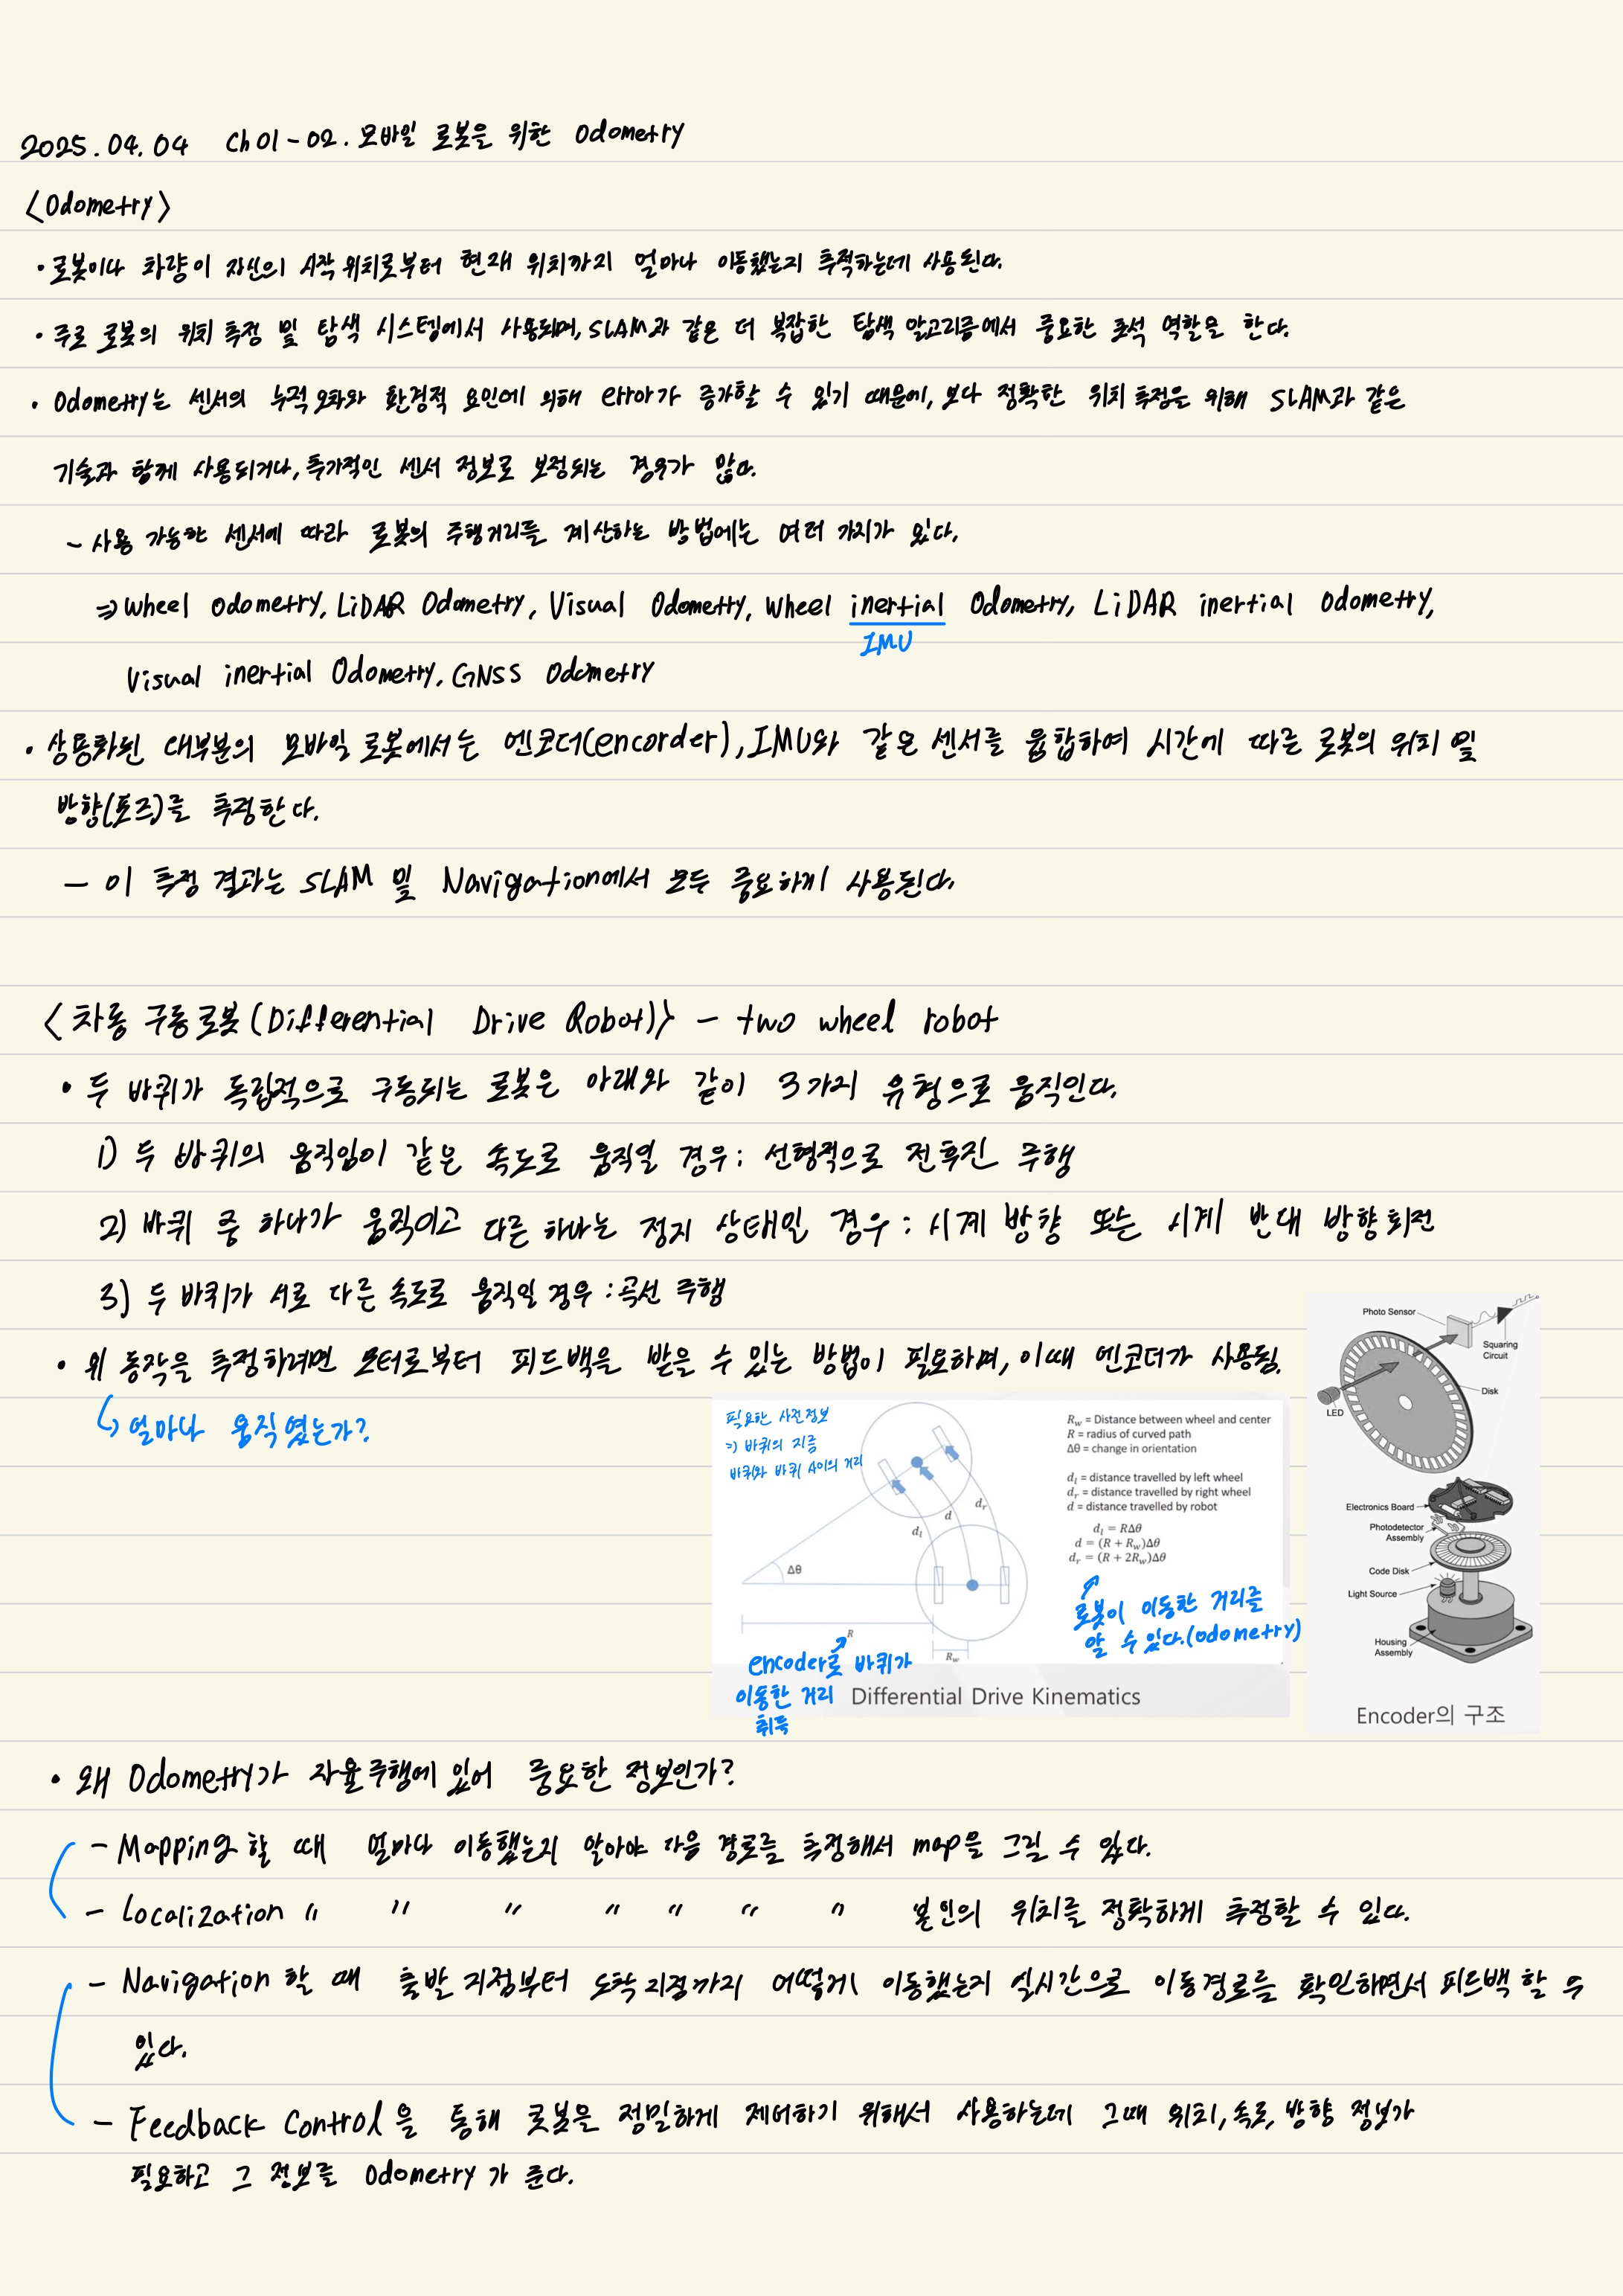 2025.04.04 Ch01-02. 모바일 로봇을 위한 Odometry
<Odometry>
• 로봇이나 차량이 자신의 시작 위치로부터 현재 위치까지 얼마나 이동했는지 추적하는데 사용된다.
• 주로 로봇의 위치 추정 및 탐색 시스템에서 사용되며, SLAM과 같은 더 복잡한 탐색 알고리즘에서 중요한 초석 역할을 한다.
• Odometry는 센서의 누적 오차와 환경적 요인에 의해 error가 증가할 수 있기 때문에, 보다 정확한 위치 추정을 위해 SLAM과 같은
기술과 함께 사용되거나, 추가적인 센서 정보로 보정되는 경우가 많다.
- 사용 가능한 센서에 따라 로봇의 주행거리를 계산하는 방법에는 여러 가지가 있다.
⇒ Wheel Odometry, LiDAR Odometry, Visual Odometry, Wheel inertial Odometry, LiDAR inertial Odometry,
IMU
Visual inertial Odometry, GNSS Odometry
• 상용화된 대부분의 모바일 로봇에서는 엔코더(encorder), IMU와 같은 센서를 융합하여 시간에 따른 로봇의 위치 및
방향(포즈)를 추정한다.
- 이 추정 결과는 SLAM 및 Navigation에서 모두 중요하게 사용된다.
<차동 구동 로봇(Differential Drive Robot)> - two wheel robot
• 두 바퀴가 독립적으로 구동되는 로봇은 아래와 같이 3가지 유형으로 움직인다.
1) 두 바퀴의 움직임이 같은 속도로 움직일 경우: 선형적으로 전후진 주행
2) 바퀴 중 하나가 움직이고 다른 하나는 정지 상태일 경우: 시계 방향 또는 시계 반대 방향 회전
3) 두 바퀴가 서로 다른 속도로 움직일 경우: 곡선 주행
• 위 동작을 추정하려면 모터로부터 피드백을 받을 수 있는 방법이 필요하며, 이때 엔코더가 사용됨.
↳ 얼마나 움직였는가?
필요한 사전정보
⇒ 바퀴의 지름
바퀴와 바퀴 사이의 거리
Δθ
d_l
d
d_r
R
R_w
R_w = Distance between wheel and center
R = radius of curved path
Δθ = change in orientation
d_l = distance travelled by left wheel
d_r = distance travelled by right wheel
d = distance travelled by robot
d_l = RΔθ
d = (R + R_w)Δθ
d_r = (R + 2R_w)Δθ
로봇이 이동한 거리를
알 수 있다.(odometry)
encoder로 바퀴가
이동한 거리
취득
Differential Drive Kinematics
Photo Sensor
Squaring
Circuit
Disk
LED
Electronics Board
Photodetector
Assembly
Code Disk
Light Source
Housing
Assembly
Encoder의 구조
• 왜 Odometry가 자율주행에 있어 중요한 정보인가?
- Mapping 할 때 얼마나 이동했는지 알아야 다음 경로를 추정해서 map을 그릴 수 있다.
- Localization 〃 〃 〃 〃 〃 〃 〃 본인의 위치를 정확하게 추정할 수 있다.
- Navigation 할 때 출발 지점부터 도착 지점까지 어떻게 이동했는지 실시간으로 이동경로를 확인하면서 피드백 할 수
있다.
- Feedback Control을 통해 로봇을 정밀하게 제어하기 위해서 사용하는데 그때 위치, 속도, 방향 정보가
필요하고 그 정보를 Odometry가 준다.